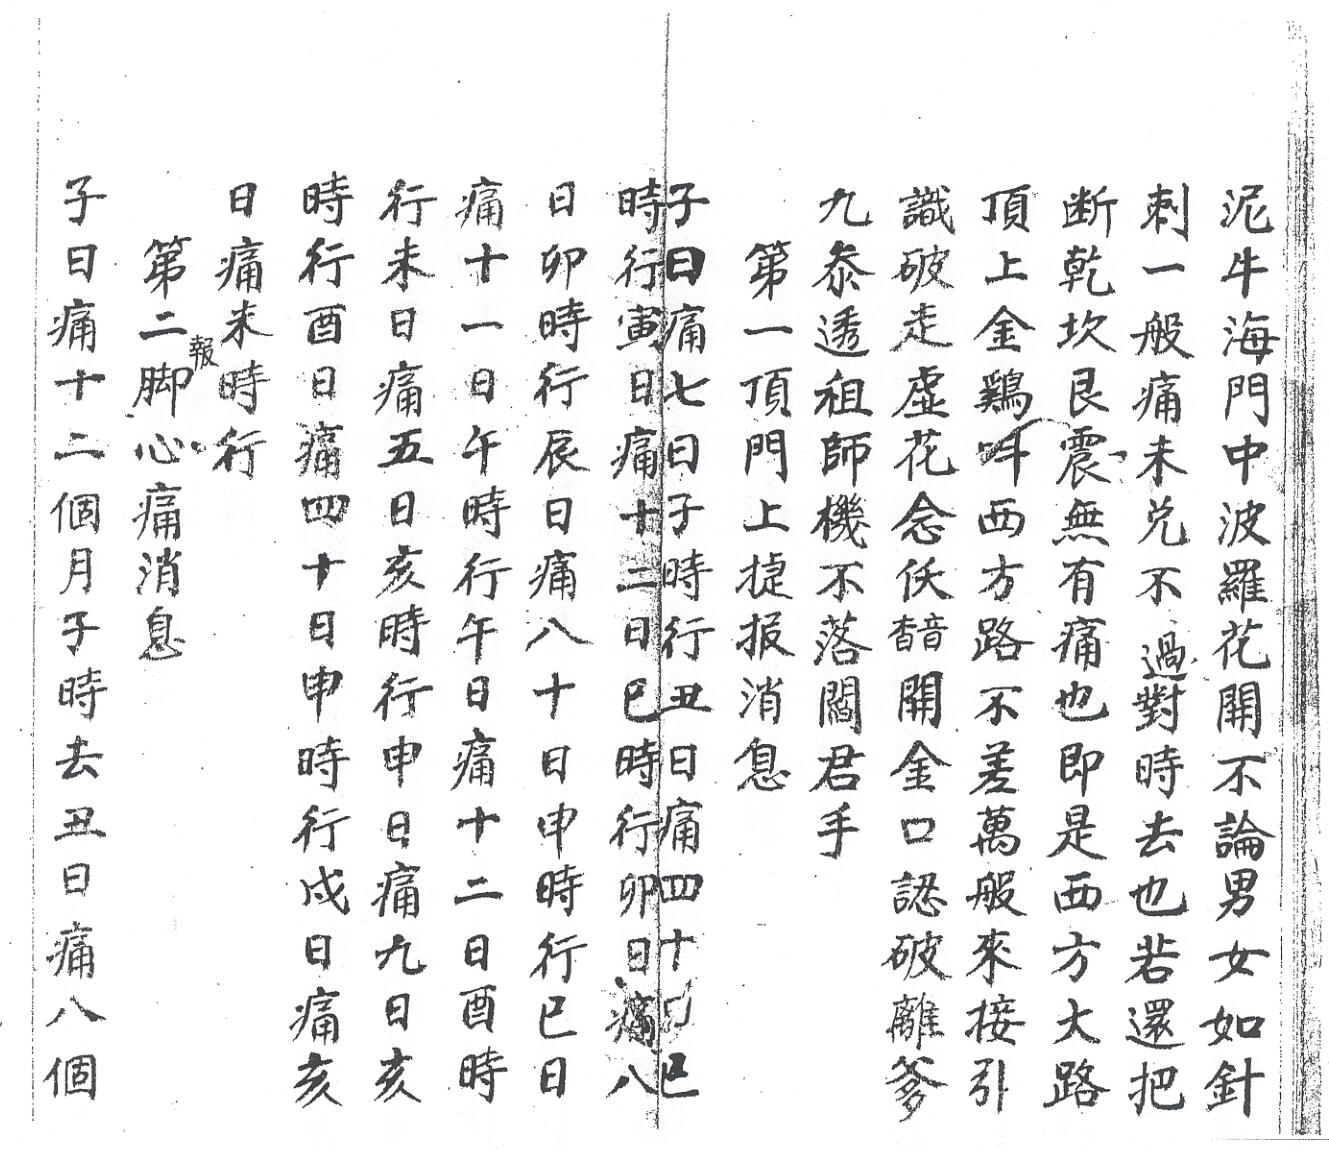 泥牛海門中波羅花開不論男女如針
刺一般痛未兑不過對時去也若還把
断乾坎艮震無有痛也即是西方大路
頂上金鷄呌西方路不差萬般來接引
識破走虛花念佅開金口認破離爹
九叅透祖師機不落閻君手
第一頂門上捷报消息
子日痛七日子時行丑日痛四十日巳
時行寅日痛十二日巳時行卯日痛八
日卯時行辰日痛八十日申時行巳日
痛十一日午時行午日痛十二日酉時
行未日痛五日亥時行申日痛九日亥
時行酉日痛四十日申時行戍日痛亥
日痛未時行
第二脚心痛消息
報
子日痛十二個月子時去丑日痛八個